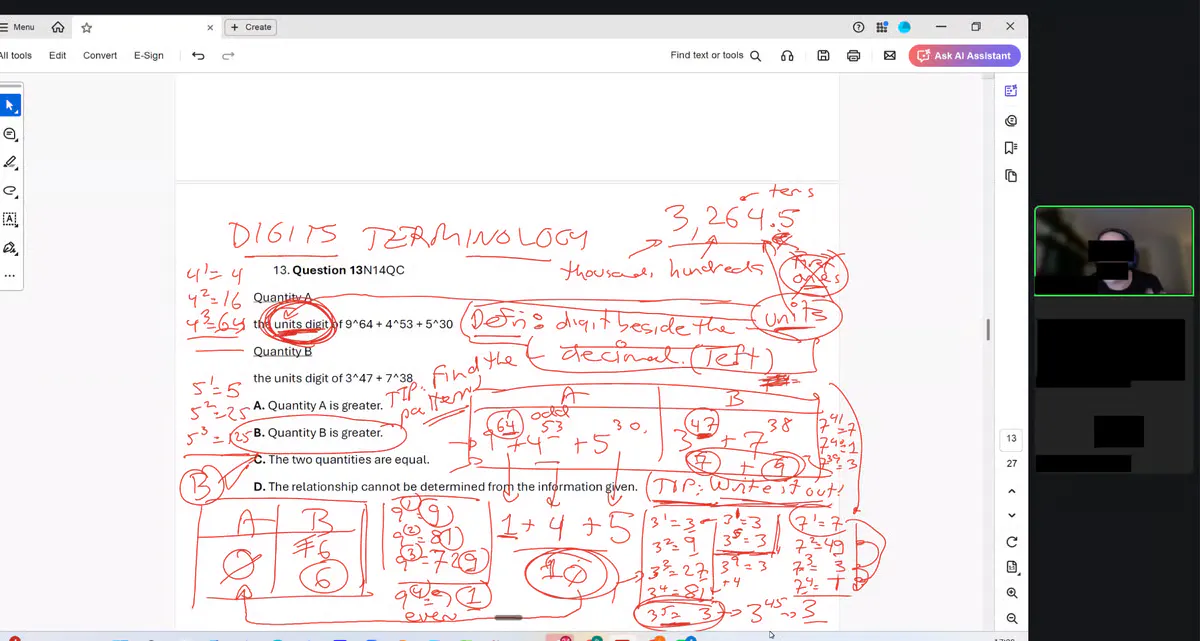 Menu
Create
All tools Edit Convert E-Sign
Find text or tools
Ask AI Assistant
tens
3,264.5
DIGITS TERMINOLOGY
thousands hundreds
first
ones
units
4^1 = 4
4^2 = 16
4^3 = 64
13. Question 13N14QC
Quantity A
the units digit of 9^64 + 4^53 + 5^30
Defn: digit beside the
decimal. (Left)
Quantity B
the units digit of 3^47 + 7^38
TIP: Find the
pattern
5^1 = 5
5^2 = 25
5^3 = 125
A. Quantity A is greater.
B. Quantity B is greater.
C. The two quantities are equal.
D. The relationship cannot be determined from the information given.
B
A B
odd
9^64 + 4^53 + 5^30
3^47 + 7^38
7 + 9
7^41 = 7
TIP: Write it out!
1 + 4 + 5
10
A B
0 6
6
A
9^1 = 9
9^2 = 81
9^3 = 729
9^4 = 1
even
3^1 = 3
3^2 = 9
3^3 = 27
3^4 = 81
3^5 = 3
3^1 = 3
3^5 = 3
3^9 = 3
+4
3^45 = 3
7^1 = 7
7^2 = 49
7^3 = 3
7^4 = 1
13
27